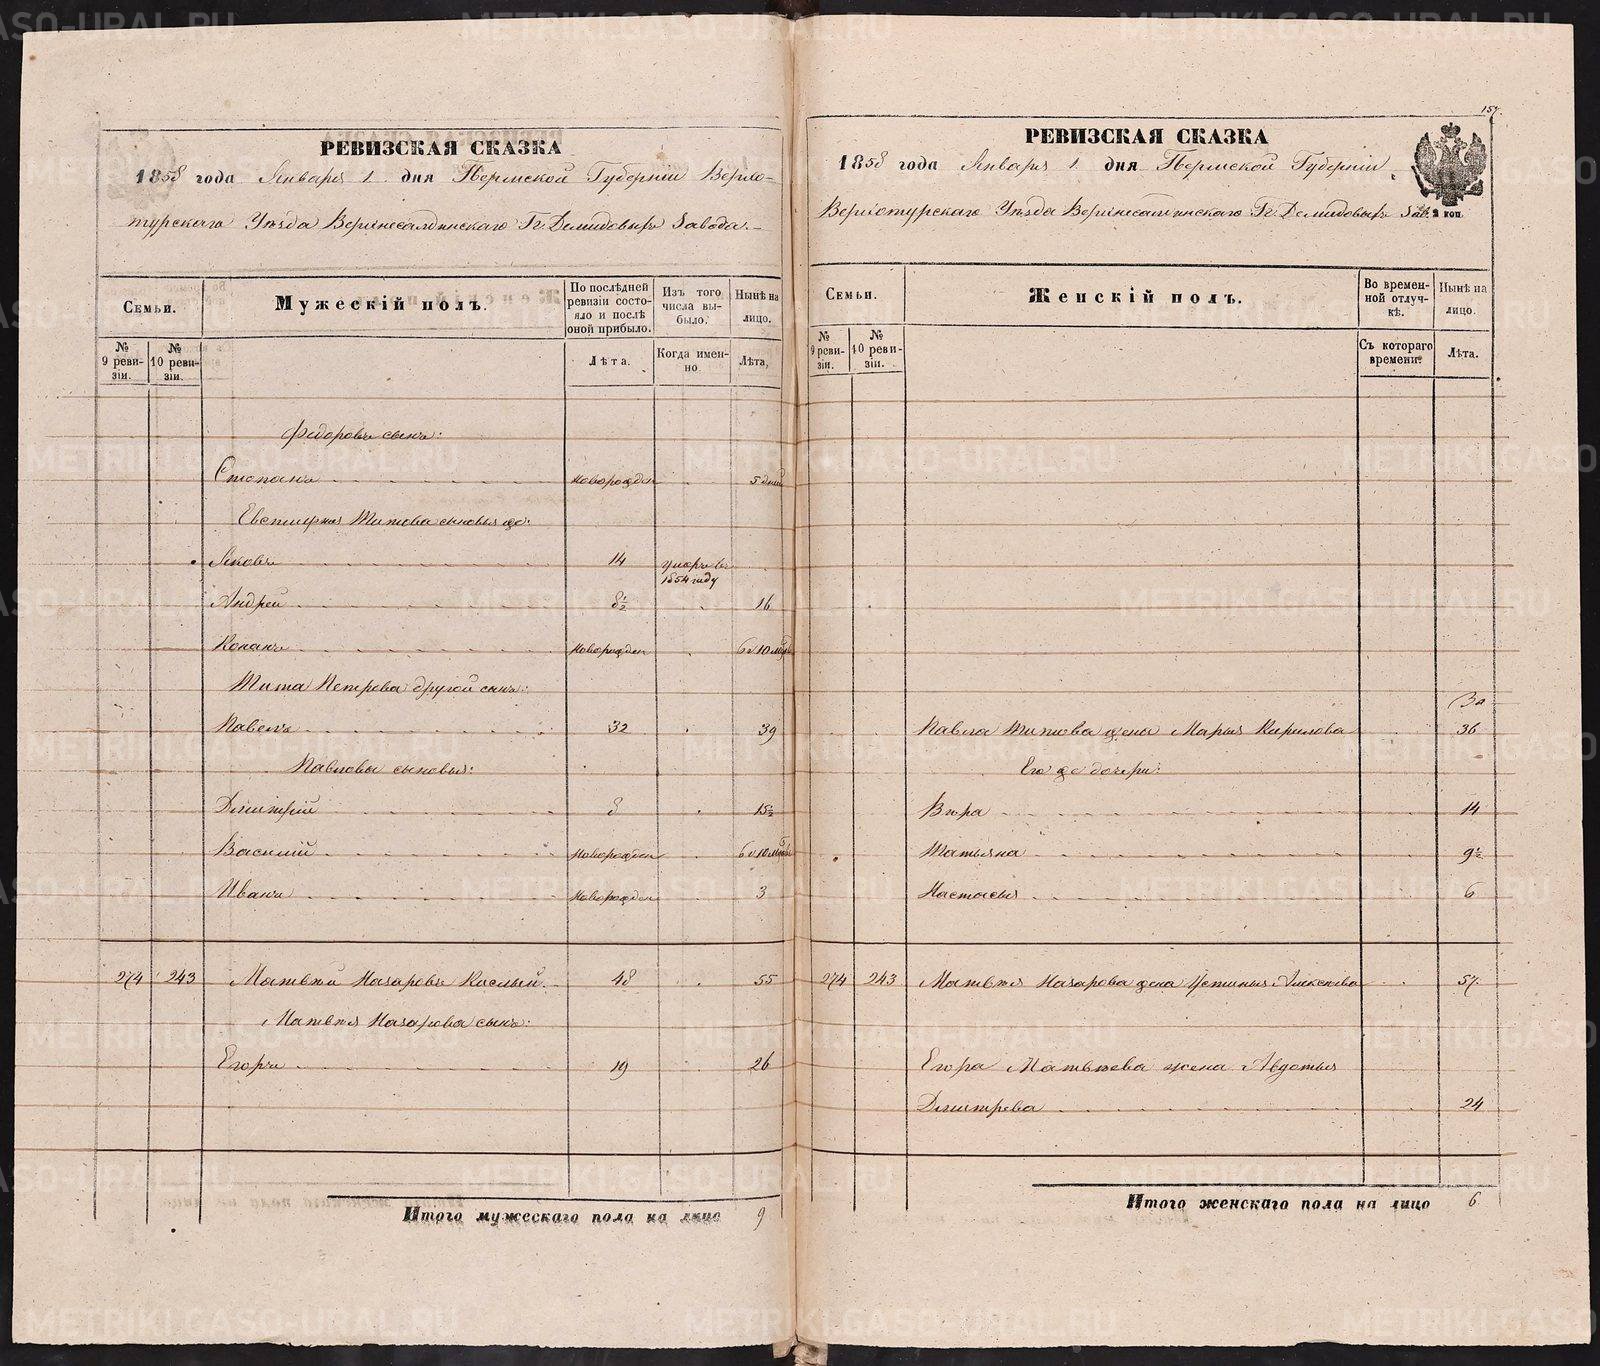 РЕВИЗСКАЯ СКАЗКА
1858 года Января 1 дня Пермской Губернiи Верхо-
турскаго Уѣзда Верхнесалдинскаго Гг. Демидовыхъ Завода.
Семьи.
Мужескiй полъ.
По послѣдней ревизiи состо-яло и послѣ оной прибыло.
Изъ того числа вы-было.
Нынѣ на лицо.
№ 9 реви-зiи.
№ 10 реви-зiи.
Лѣта.
Когда имен-но.
Лѣта.
Федоровъ сынъ:
Степанъ новорожден 5 дней
Евстифея Титова сыновья же:
Яковъ 14 умеръ въ 1854 году
Андрей 8½ 16
Конанъ новорожден 6 и 10 мѣс
Тита Петрова другой сынъ:
Павелъ 32 39
Павловы сыновья:
Дмитрiй 8 15½
Василiй новорожден 6 и 10 мѣс
Иванъ новорожден 3
274 243 Матвѣй Назаровъ Кислый 48 55
Матвѣя Назарова сынъ:
Егоръ 19 26
Итого мужескаго пола на лицо 9
157
РЕВИЗСКАЯ СКАЗКА
1858 года Января 1 дня Пермской Губернiи
Верхотурскаго Уѣзда Верхнесалдинскаго Гг. Демидовыхъ Зав.
2 коп
Семьи.
Женскiй полъ.
Во времен-ной отлуч-кѣ.
Нынѣ на лицо.
№ 9 реви-зiи.
№ 10 реви-зiи.
Съ котораго времени.
Лѣта.
Павла Титова жена Марья Кирилова 36
Его же дочери:
Вѣра 14
Татьяна 9½
Настасья 6
274 243 Матвѣя Назарова жена Устинья Алексѣева 57
Егора Матвѣева жена Авдотья
Дмитрева 24
Итого женскаго пола на лицо 6
METRIKI.GASO-URAL.RU